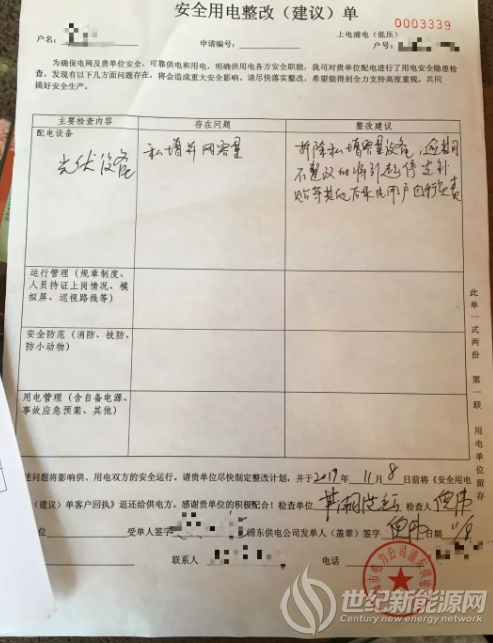 安全用电整改（建议）单
0003339
上电浦电（低压）
户名：
申请编号：
户号：
为确保电网及贵单位安全、可靠供电和用电，明确供用电各方安全职能，我司对贵单位配电进行了用电安全隐患检
查，发现有以下几方面问题存在，将会造成重大安全影响。请尽快落实整改，希望能得到全力支持高度重视，共同
搞好安全生产。
主要检查内容
存在问题
整改建议
配电设备
光伏设备
私增并网容量
拆除私增容量设备，逾期
不整改的将引起停发补
贴等其他后果由用户自行负责
运行管理（规章制度、
人员持证上岗情况、模
拟屏、巡视路线等）
安全防范（消防、技防、
防小动物）
用电管理（含自备电源、
事故应急预案、其他）
此单一式两份 第一联 用电单位留存
述问题将影响供、用电双方的安全运行，请贵单位尽快制定整改计划，并于2017年11月8日前将《安全用电
（建议）单客户回执》返还给供电方。感谢贵单位的积极配合！检查单位 检查人
位 受单人签字 浦东供电公司发单人（盖章）签字 日期 11/8
联系人 电话
世纪新能源网
Century new energy network